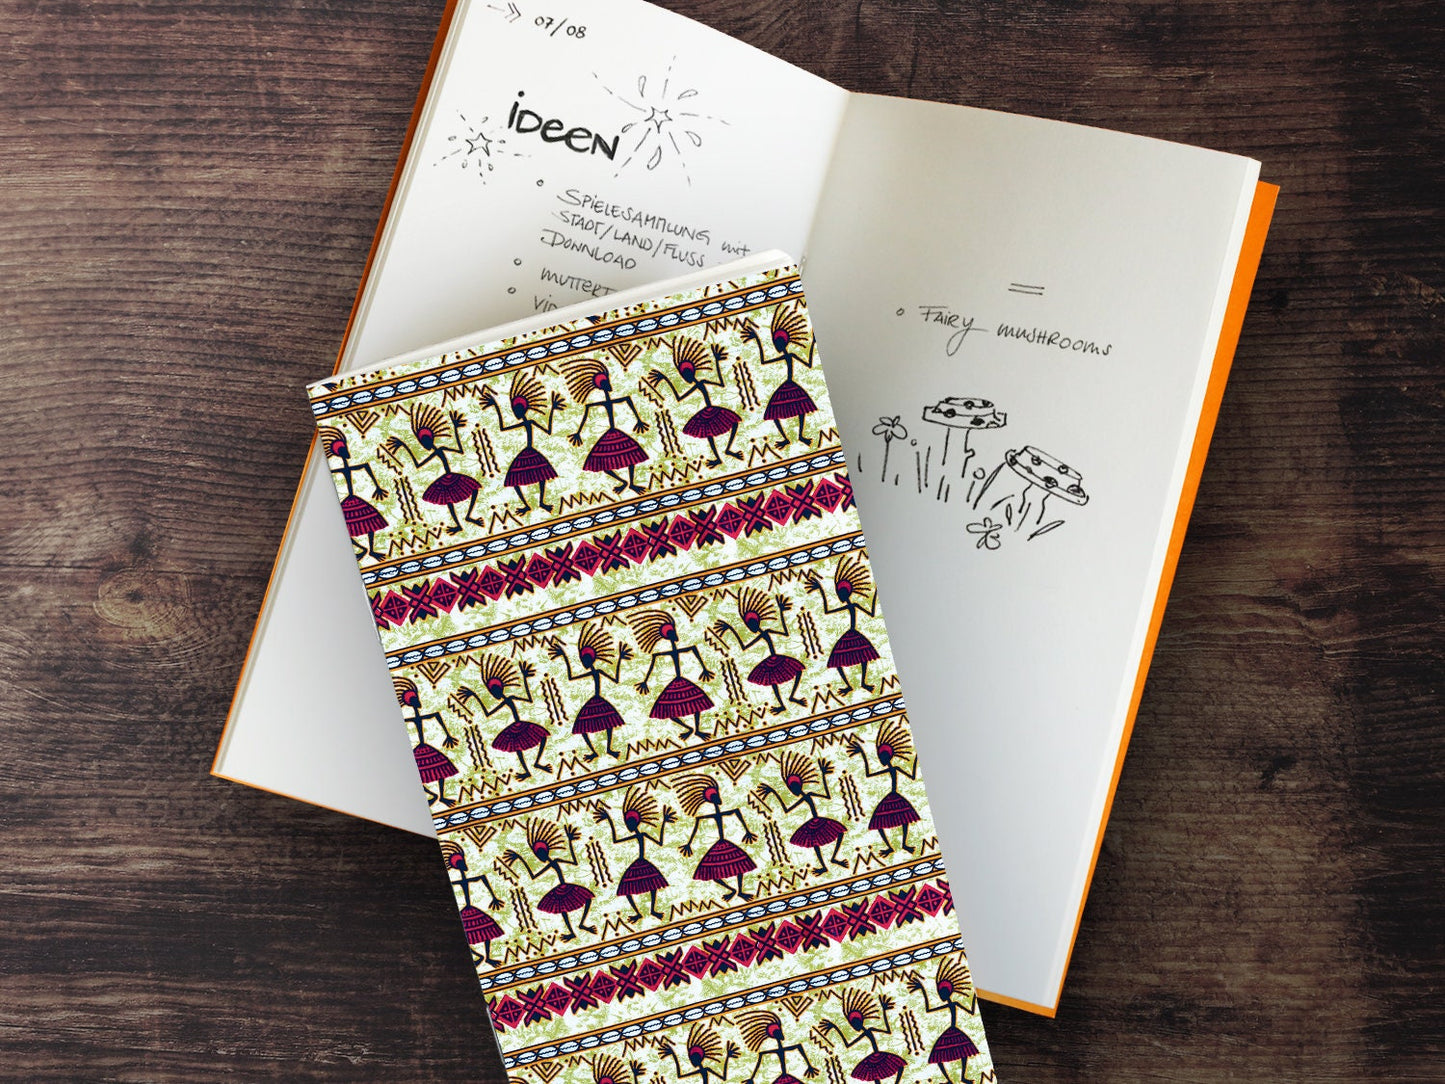 07/08
iDeeN
SPieLESAMMLUNG mit
STADT/LAND/FLUSS
DOWNLOAD
FAiRy mUSHROOmS